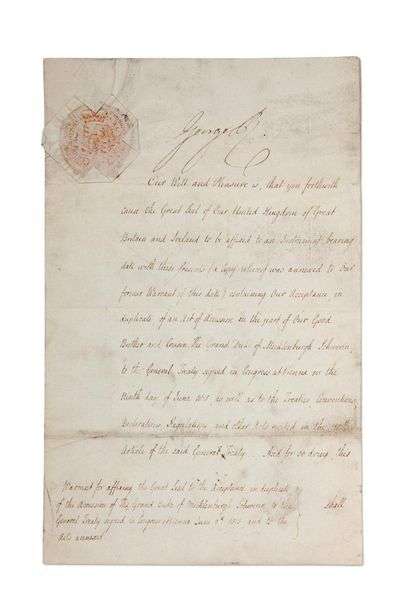 George R.
Our Will and Pleasure is, that you forthwith
cause the Great Seal of Our United Kingdom of Great
Britain and Ireland to be affixed to an Instrument bearing
date with these Presents (a Copy whereof was annexed to Our
former Warrant of this date) containing Our Acceptance in
duplicate of an Act of Accession on the part of Our Good
Brother and Cousin The Grand Duke of Mecklenburgh Schwerin,
to the General Treaty signed in Congress at Vienna on the
Ninth day of June 1815, as well as to the Treaties, Conventions,
Declarations, Regulations, and other Acts cited in the
Article of the said General Treaty. And for so doing, this
shall
Warrant for affixing the Great Seal to the Acceptance in duplicate
of the Accession of The Grand Duke of Mecklenburgh Schwerin, to the
General Treaty signed in Congress at Vienna June 9th 1815 and to the
Acts annexed